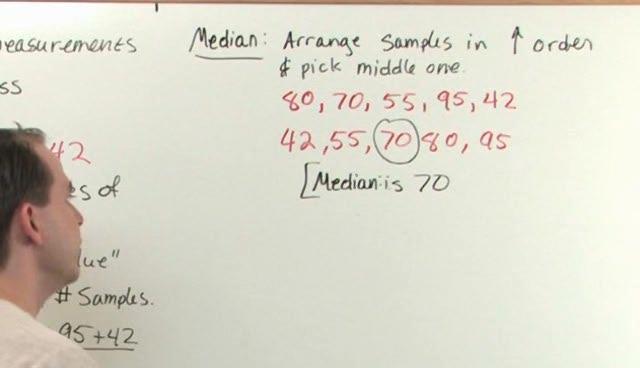 easurements
ss
42
es of
lue"
# Samples.
95+42
Median: Arrange Samples in ↑ order
& pick middle one.
80, 70, 55, 95, 42
42, 55, 70 80, 95
[Median is 70